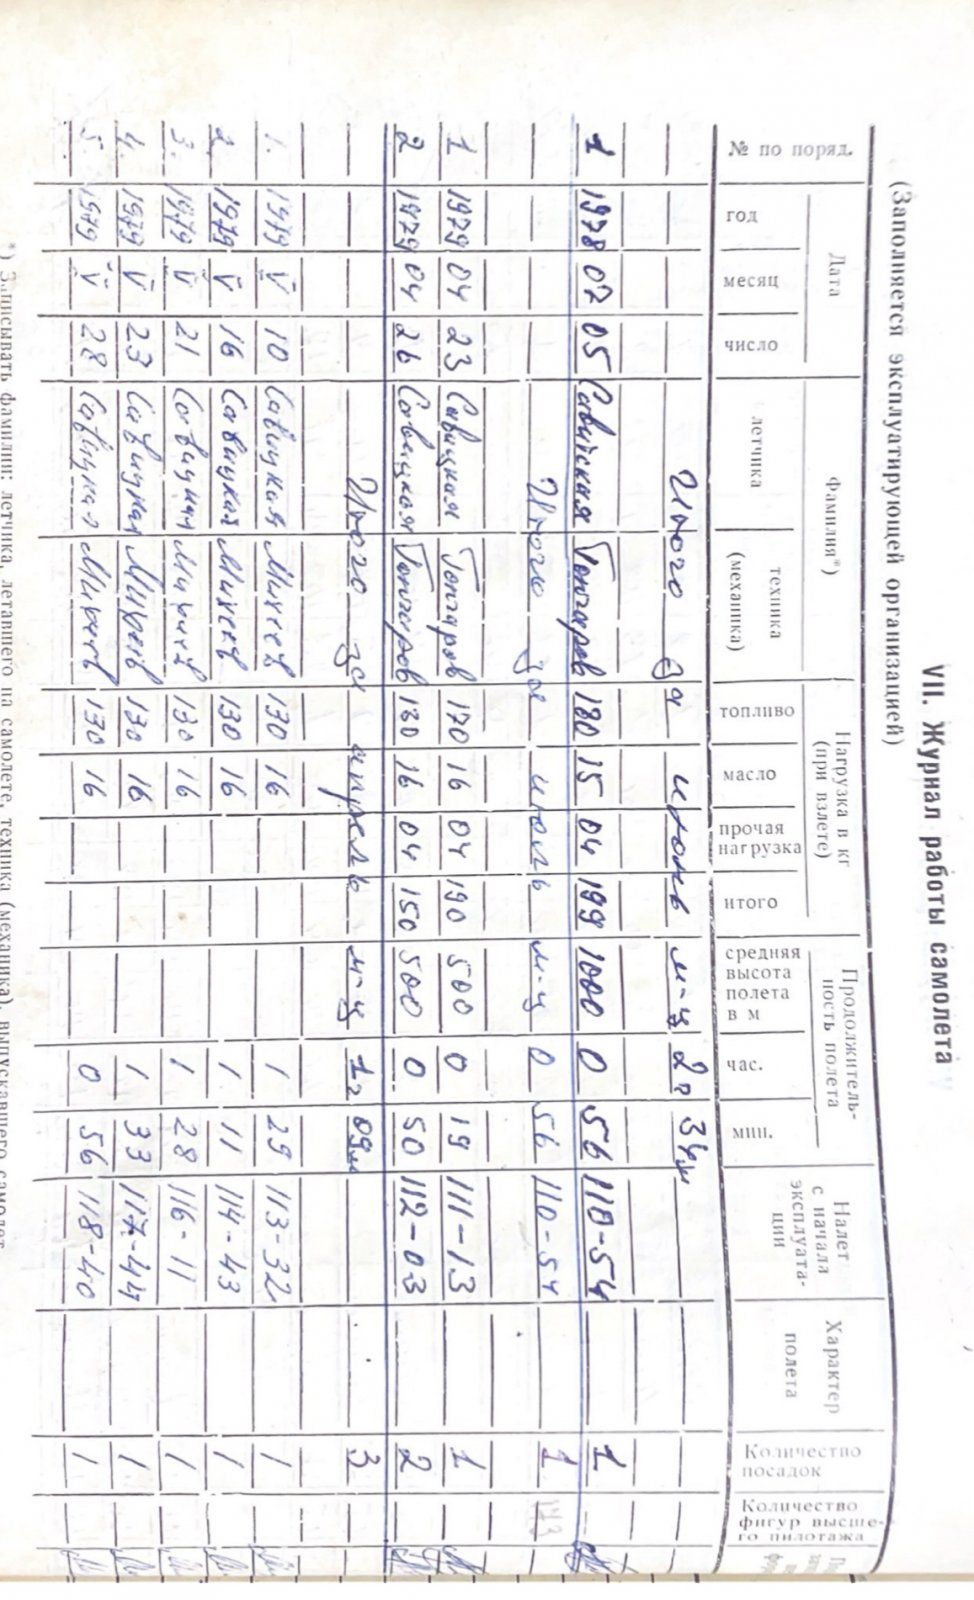 VII. Журнал работы самолета
(Заполняется эксплуатирующей организацией)
№ по поряд. Дата Фамилия*) Нагрузка в кг (при взлете) Продолжительность полета Налет с начала эксплуатации Характер полета Количество посадок Количество фигур высшего пилотажа
год месяц число летчика техника (механика) топливо масло прочая нагрузка итого средняя высота полета в м час. мин.
Итого за июнь м-ц 2ч 34м
1 1978 07 05 Савицкая Гончаров 180 15 04 199 1000 0 56 110-54 1
Итого за июль м-ц 0 56 110-54 1
1 1979 04 23 Савицкая Гончаров 170 16 04 190 500 0 19 111-13 1
2 1979 04 26 Савицкая Гончаров 130 16 04 150 500 0 50 112-03 2
Итого за апрель м-ц 1ч 09м 3
1. 1979 V 10 Савицкая Михеев 130 16 1 29 113-32 1
2. 1979 V 16 Савицкая Михеев 130 16 1 11 114-43 1
3. 1979 V 21 Савицкая Михеев 130 16 1 28 116-11 1
4. 1979 V 23 Савицкая Михеев 130 16 1 33 117-44 1
5. 1979 V 28 Савицкая Михеев 130 16 0 56 118-40 1
*) Записывать фамилии: летчика, летавшего на самолете, техника (механика), выпускавшего самолет